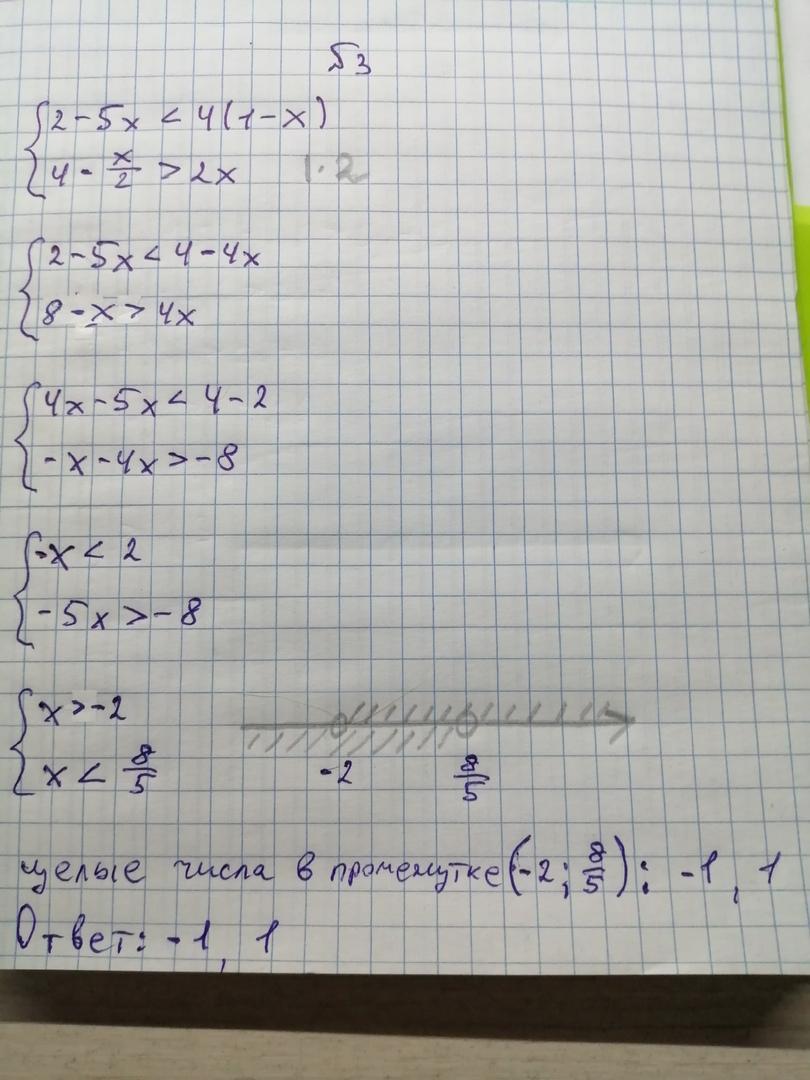 №3
2-5x < 4(1-x)
4 - x/2 > 2x |·2
2-5x < 4-4x
8-x > 4x
4x-5x < 4-2
-x-4x > -8
-x < 2
-5x > -8
x > -2
x < 8/5
-2 8/5
целые числа в промежутке (-2; 8/5): -1, 1
Ответ: -1, 1